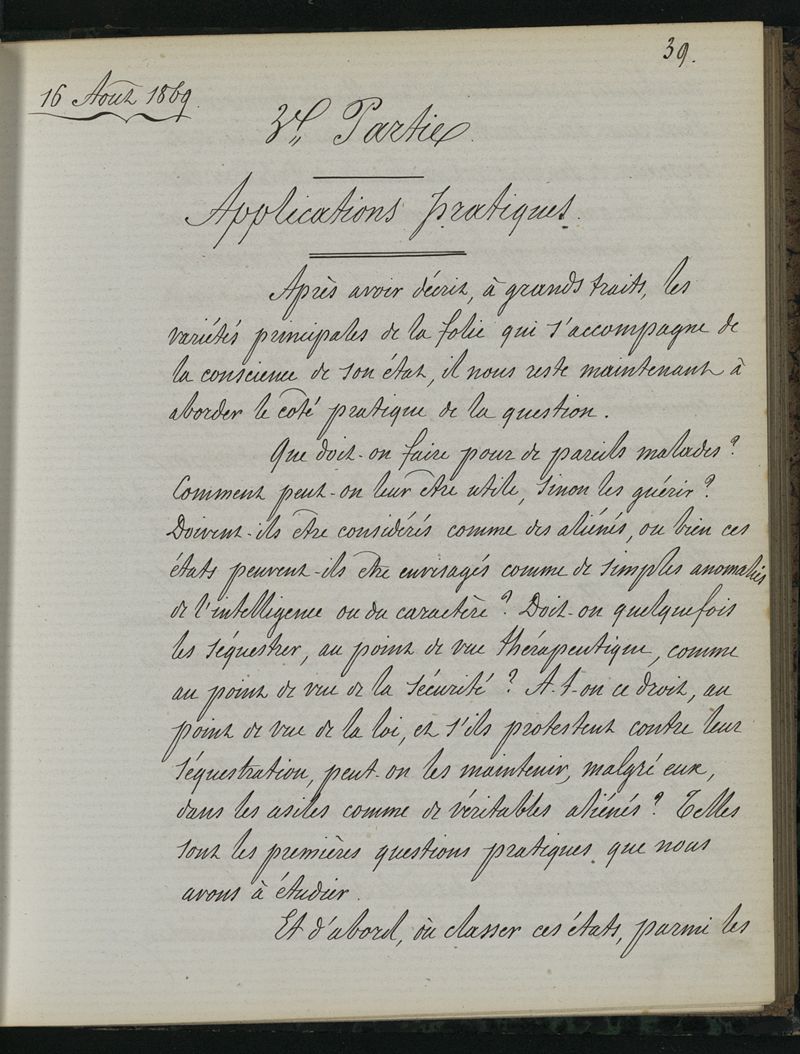 39.
16 Août 1869.
3e Partie
Applications pratiques.
Après avoir décrit, à grands traits, les
variétés principales de la folie qui s'accompagne de
la conscience de son état, il nous reste maintenant à
aborder le côté pratique de la question.
Que doit-on faire pour de pareils malades ?
Comment peut-on leur être utile, sinon les guérir ?
Doivent-ils être considérés comme des aliénés, ou bien ces
états peuvent-ils être envisagés comme de simples anomalies
de l'intelligence ou du caractère ? Doit-on quelquefois
les séquestrer, au point de vue thérapeutique, comme
au point de vue de la sécurité ? A-t-on ce droit, au
point de vue de la loi, et s'ils protestent contre leur
séquestration, peut-on les maintenir, malgré eux,
dans les asiles comme de véritables aliénés ? Telles
sont les premières questions pratiques que nous
avons à étudier.
Et d'abord, où classer ces états, parmi les